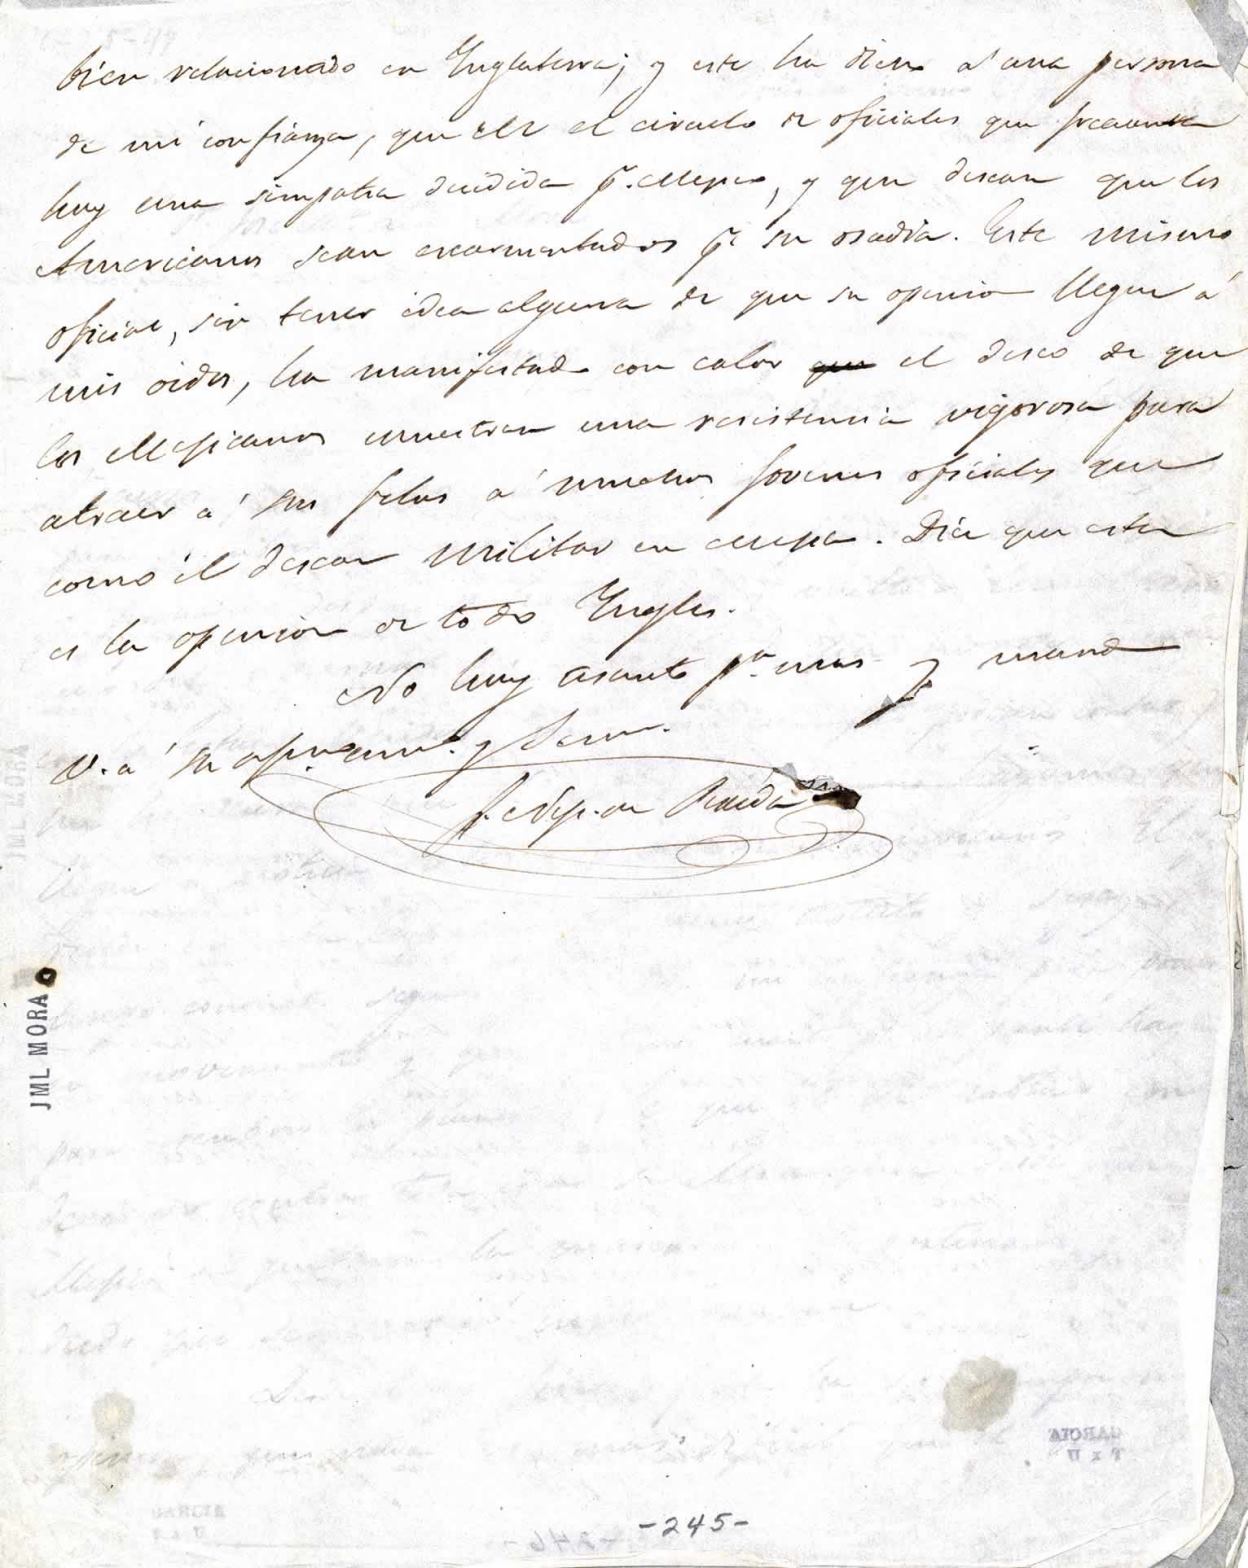 bien relacionado en Ynglaterra; y este ha dicho á una persona
de mi confianza, que en el circulo de oficiales que frecuenta
hay una simpatia decidida pr. Mejico, y que desean que los
Americanos sean escarmentados pr. su osadia. Este mismo
oficial, sin tener idea alguna de que su opinion llegue á
mis oidos, ha manifestado con calor que el deseo de que
los Mejicanos muestren una resistencia vigorosa para
atraer á sus filas á muchos jovenes oficiales que
como él desean militar en Mejico. Dice que esta
es la opinion de todo Yngles.
No hay asunto pa. mas y mande
V. á su afmo. y Serv.
JML MORA
-245-